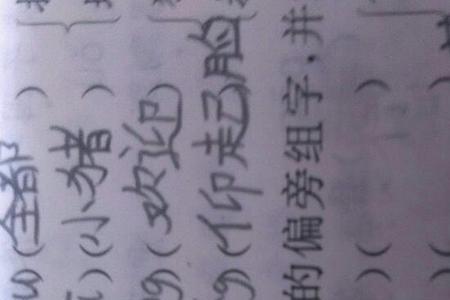 (全部 )
)(小猪 )
g(欢迎)
g(仰起脸
的偏旁组字,并
)( )
( )